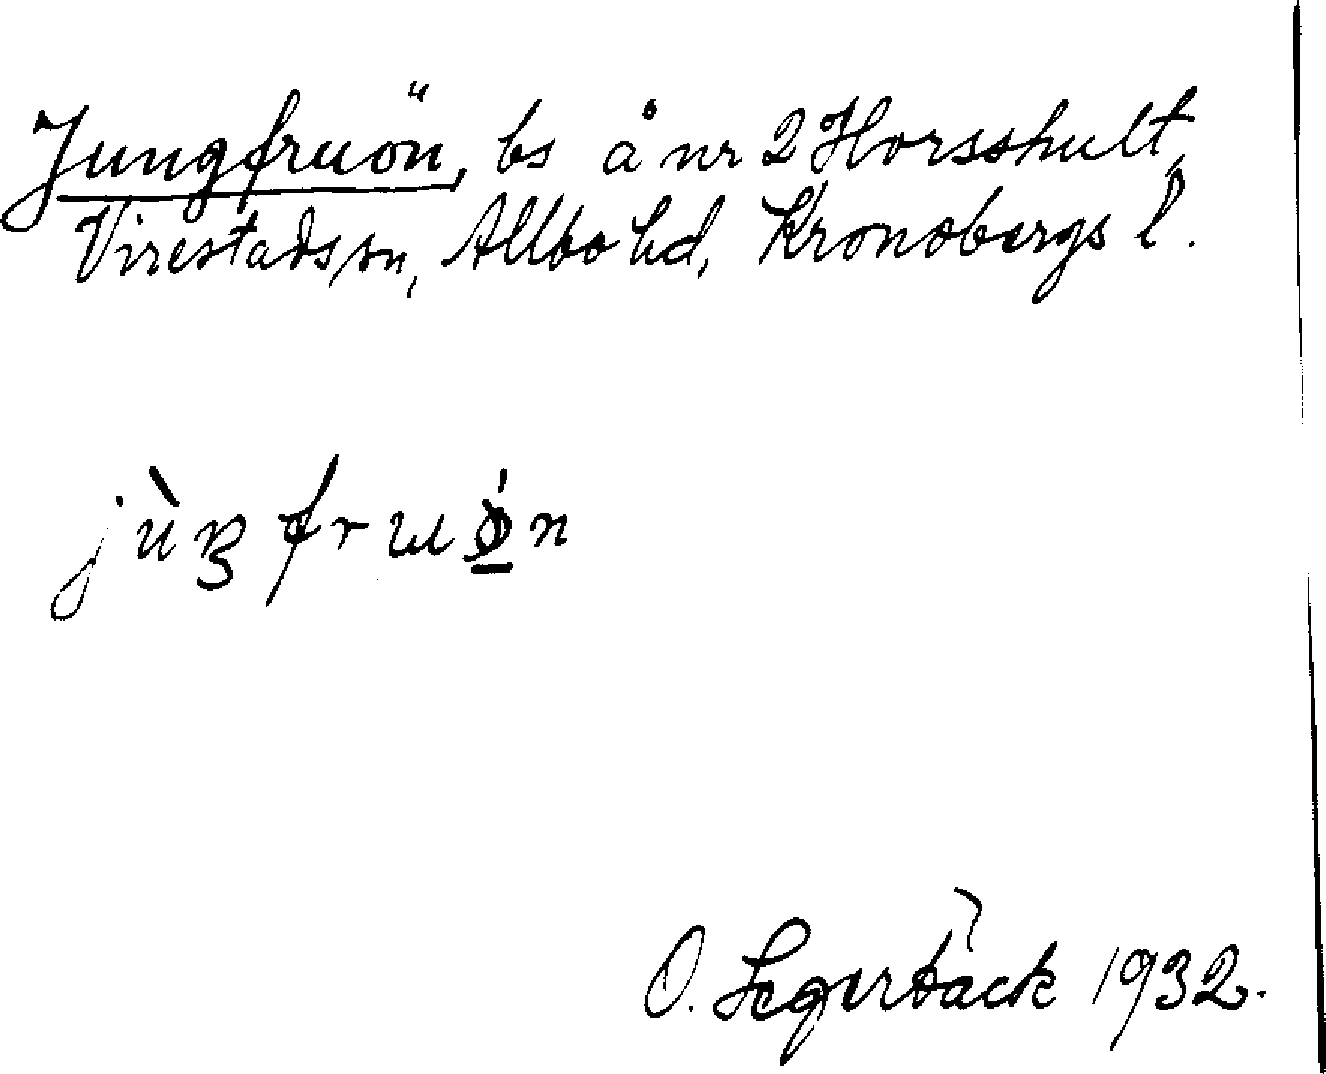 Jungfruön, bs å nr 2 Horsshult,
Virestads sn, Allbo hd, Kronobergs l.
jùŋfrɯǿn
O. Segerbäck 1932.